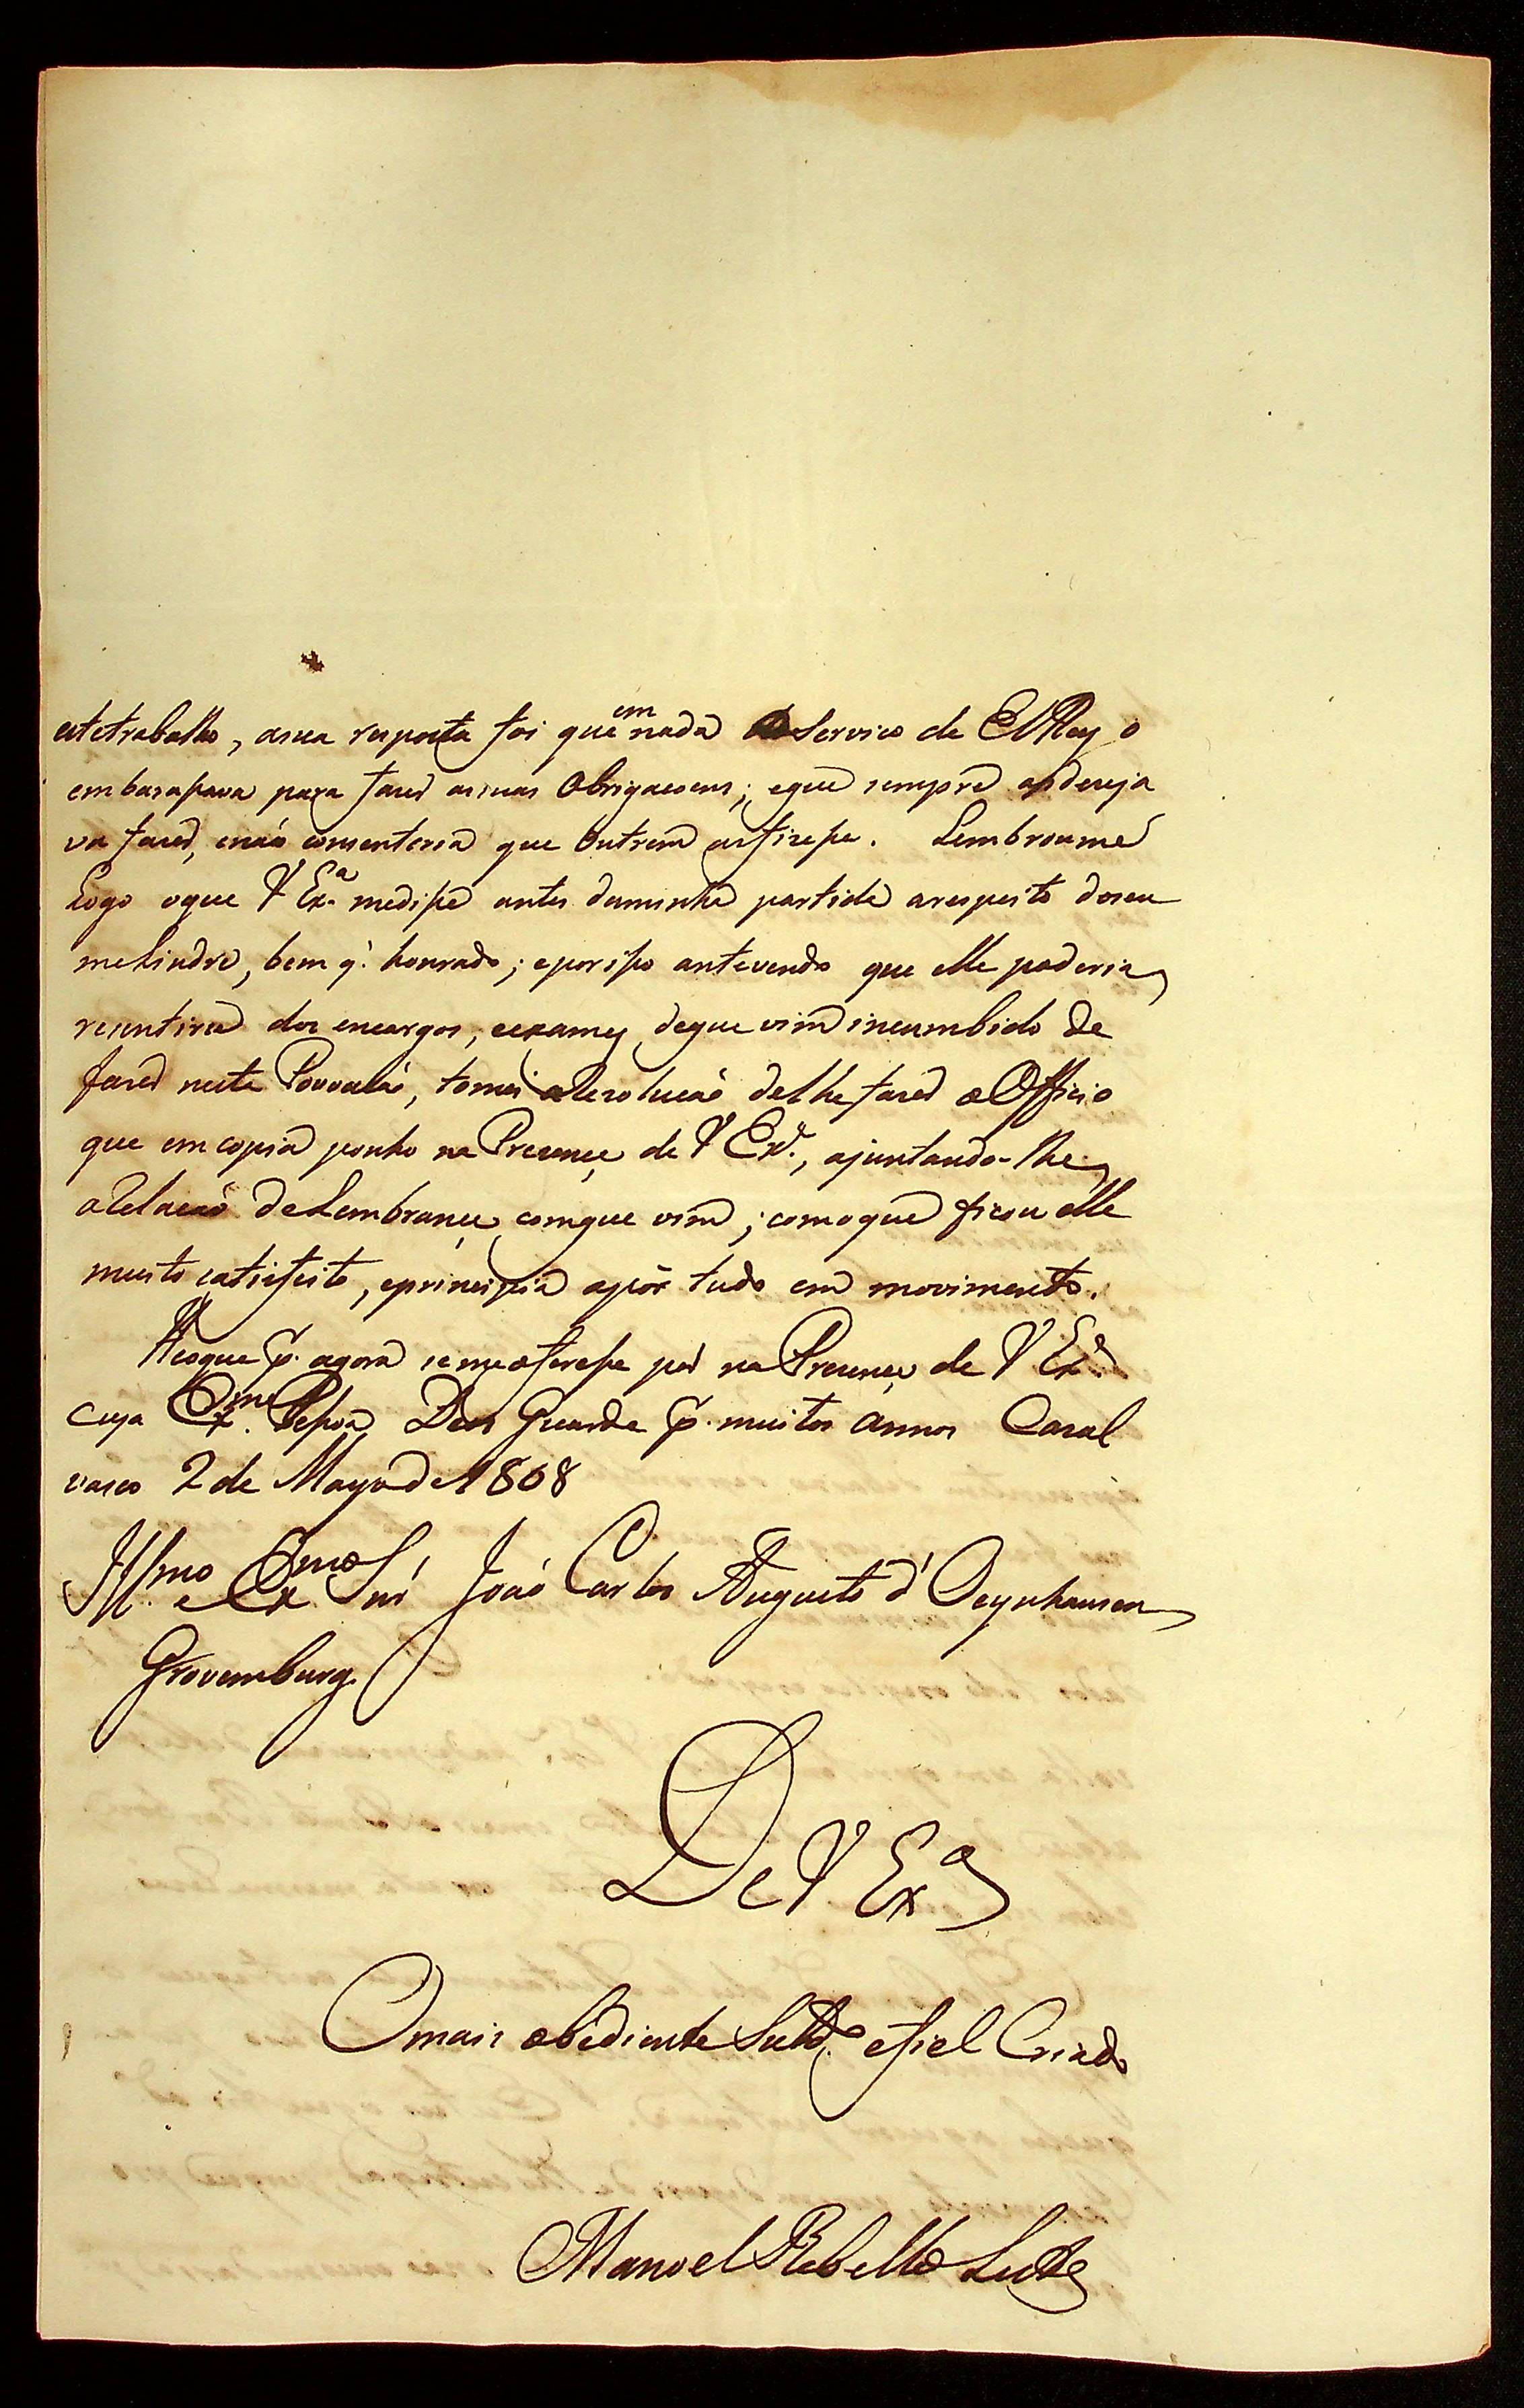 este trabalho, asua reposta foi que em nada o Servico de ElRey o
embarasava para fazer assuas Obrigacoens; eque sempre as dezeja
va fazer, enaõ consenteria que Outrem as fizese. Lembroume
Logo oque V Ex.ª medise antes daminha partida arespeito doseu
melindre, bem q. honrado; eporiso antevendo que elle poderia
resentirse dos encargos, eexames, deque vim incumbido de
fazer nesta Povoaçaõ, tomei aResolucaõ delhe fazer o Officio
que em copia ponho na Prezença de V Ex.ª, ajuntando-lhe
aRelacaõ deLembrança comque vim; comoque ficou elle
muito satisfeito, eprincipia apôr tudo em movimento.
He oque p.ª agora se me oferese pôr na Prezença de V Ex.ª
cuja Ex.ma Pesoa Deos Guarde p.r muitos annos Casal
vasco 2 de Mayo de 1808
Ill.mo e Ex.mo Snr̃ Joaõ Carlos Augusto d'Oeynhausen
Grovemburg.
De V Ex.ª
O mais obediente Subd.º efiel Criado
Manoel Rebello Leite